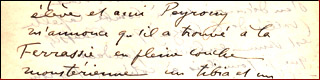 élève et ami Peyrony
m'annonça qu'il a trouvé à la
Ferrassie en pleine couche
moustérienne un tibia et un